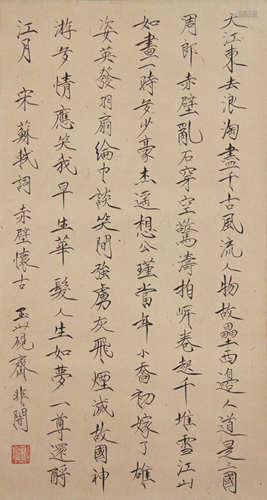 大江東去浪淘盡千古風流人物故壘西邊人道是三國
周郎赤壁亂石穿空驚濤拍岸卷起千堆雪江山
如畫一時多少豪杰遙想公瑾當年小喬初嫁了雄
姿英發羽扇綸巾談笑間強虜灰飛煙滅故國神
游多情應笑我早生華髮人生如夢一尊還酹
江月 宋 蘇軾詞 赤壁懷古 玉山硯齋 非闇